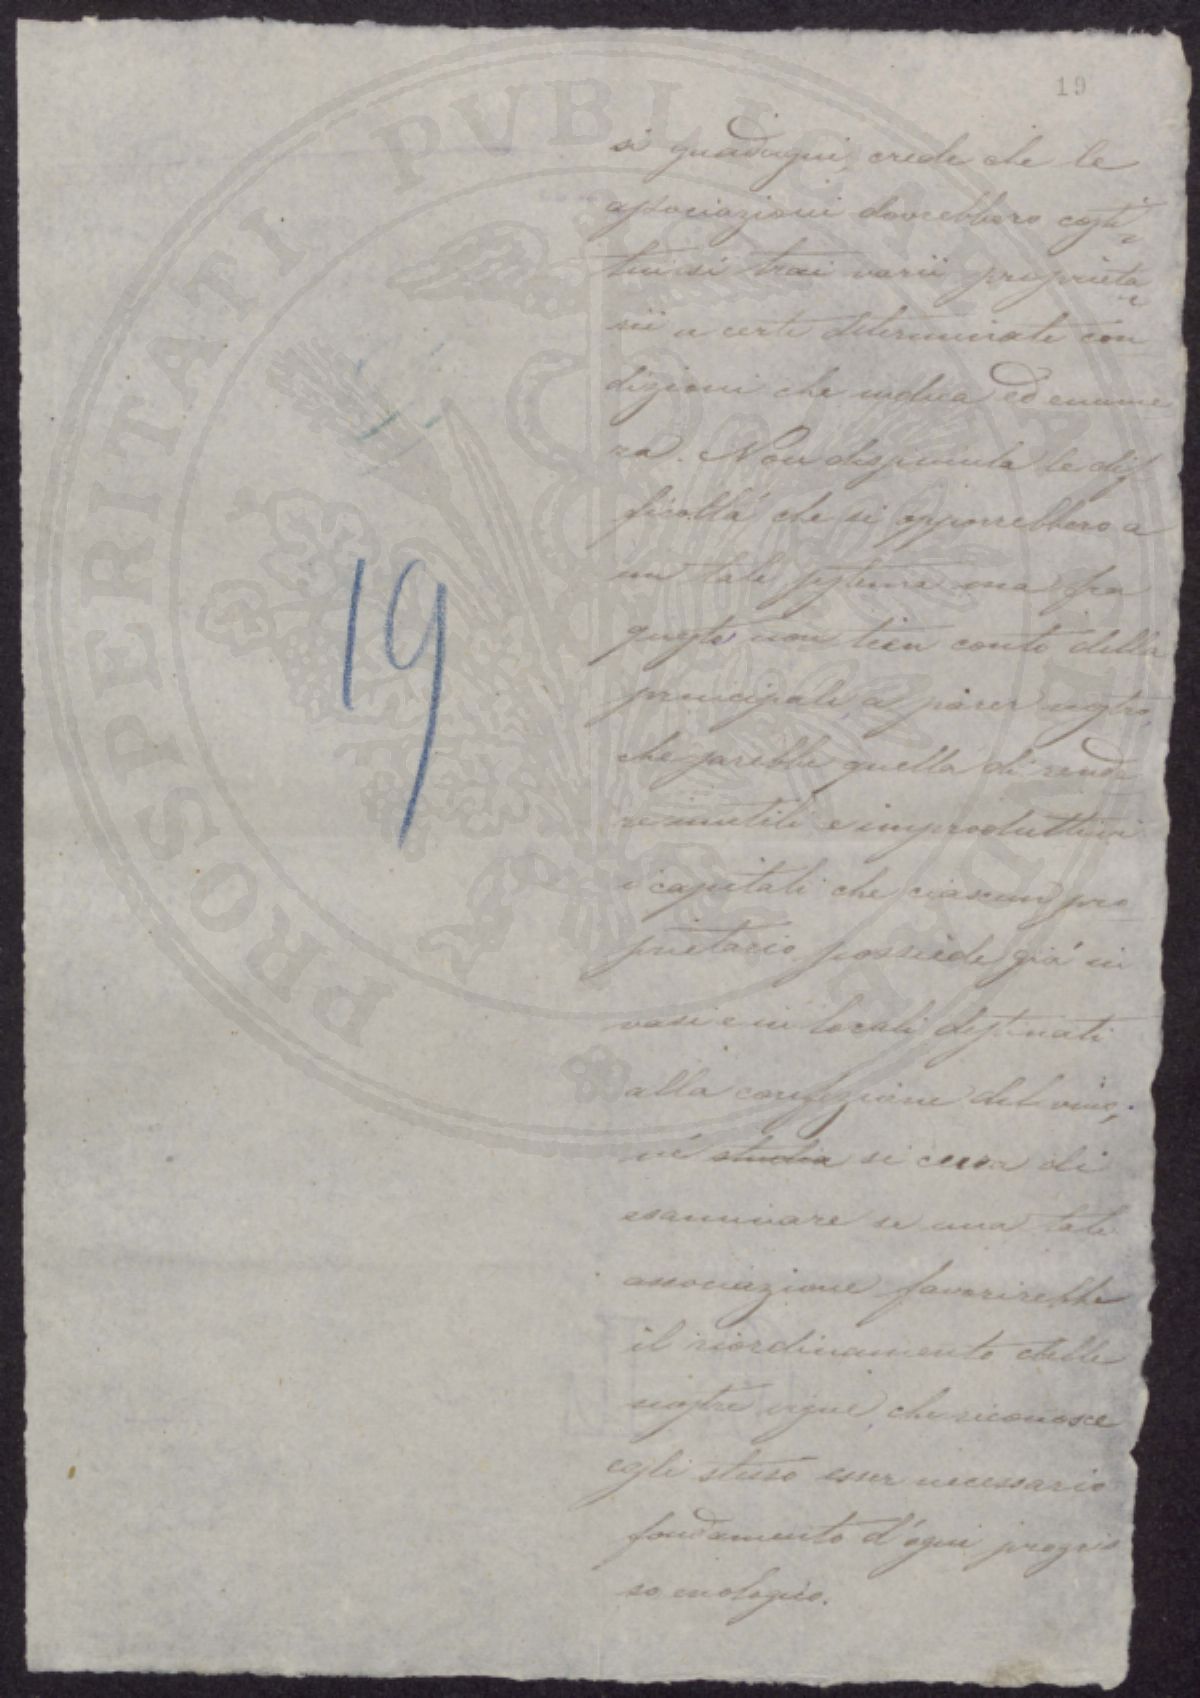 19
si guadagni, crede che le
associazioni dovrebbero costi=
tuirsi trai varii proprieta=
rii a certe determinate con
dizioni che indica ed enume
ra. Non dissimula le dif
ficoltà che si opporrebbero a
un tale sistema ma fra
queste non tien conto della
principale, a parer nostro,
che sarebbe quella di rende
re inutili e improduttivi
i capitali che ciascun pro
prietario possiede già in
vasi e in locali destinati
alla confezione del vino;
né studia si cura di
esaminare se una tale
associazione favorirebbe
il riordinamento delle
nostre vigne, che riconosce
egli stesso esser necessario
fondamento d'ogni progres
so enologico.
19
PROSPERITATI PVBLICAE